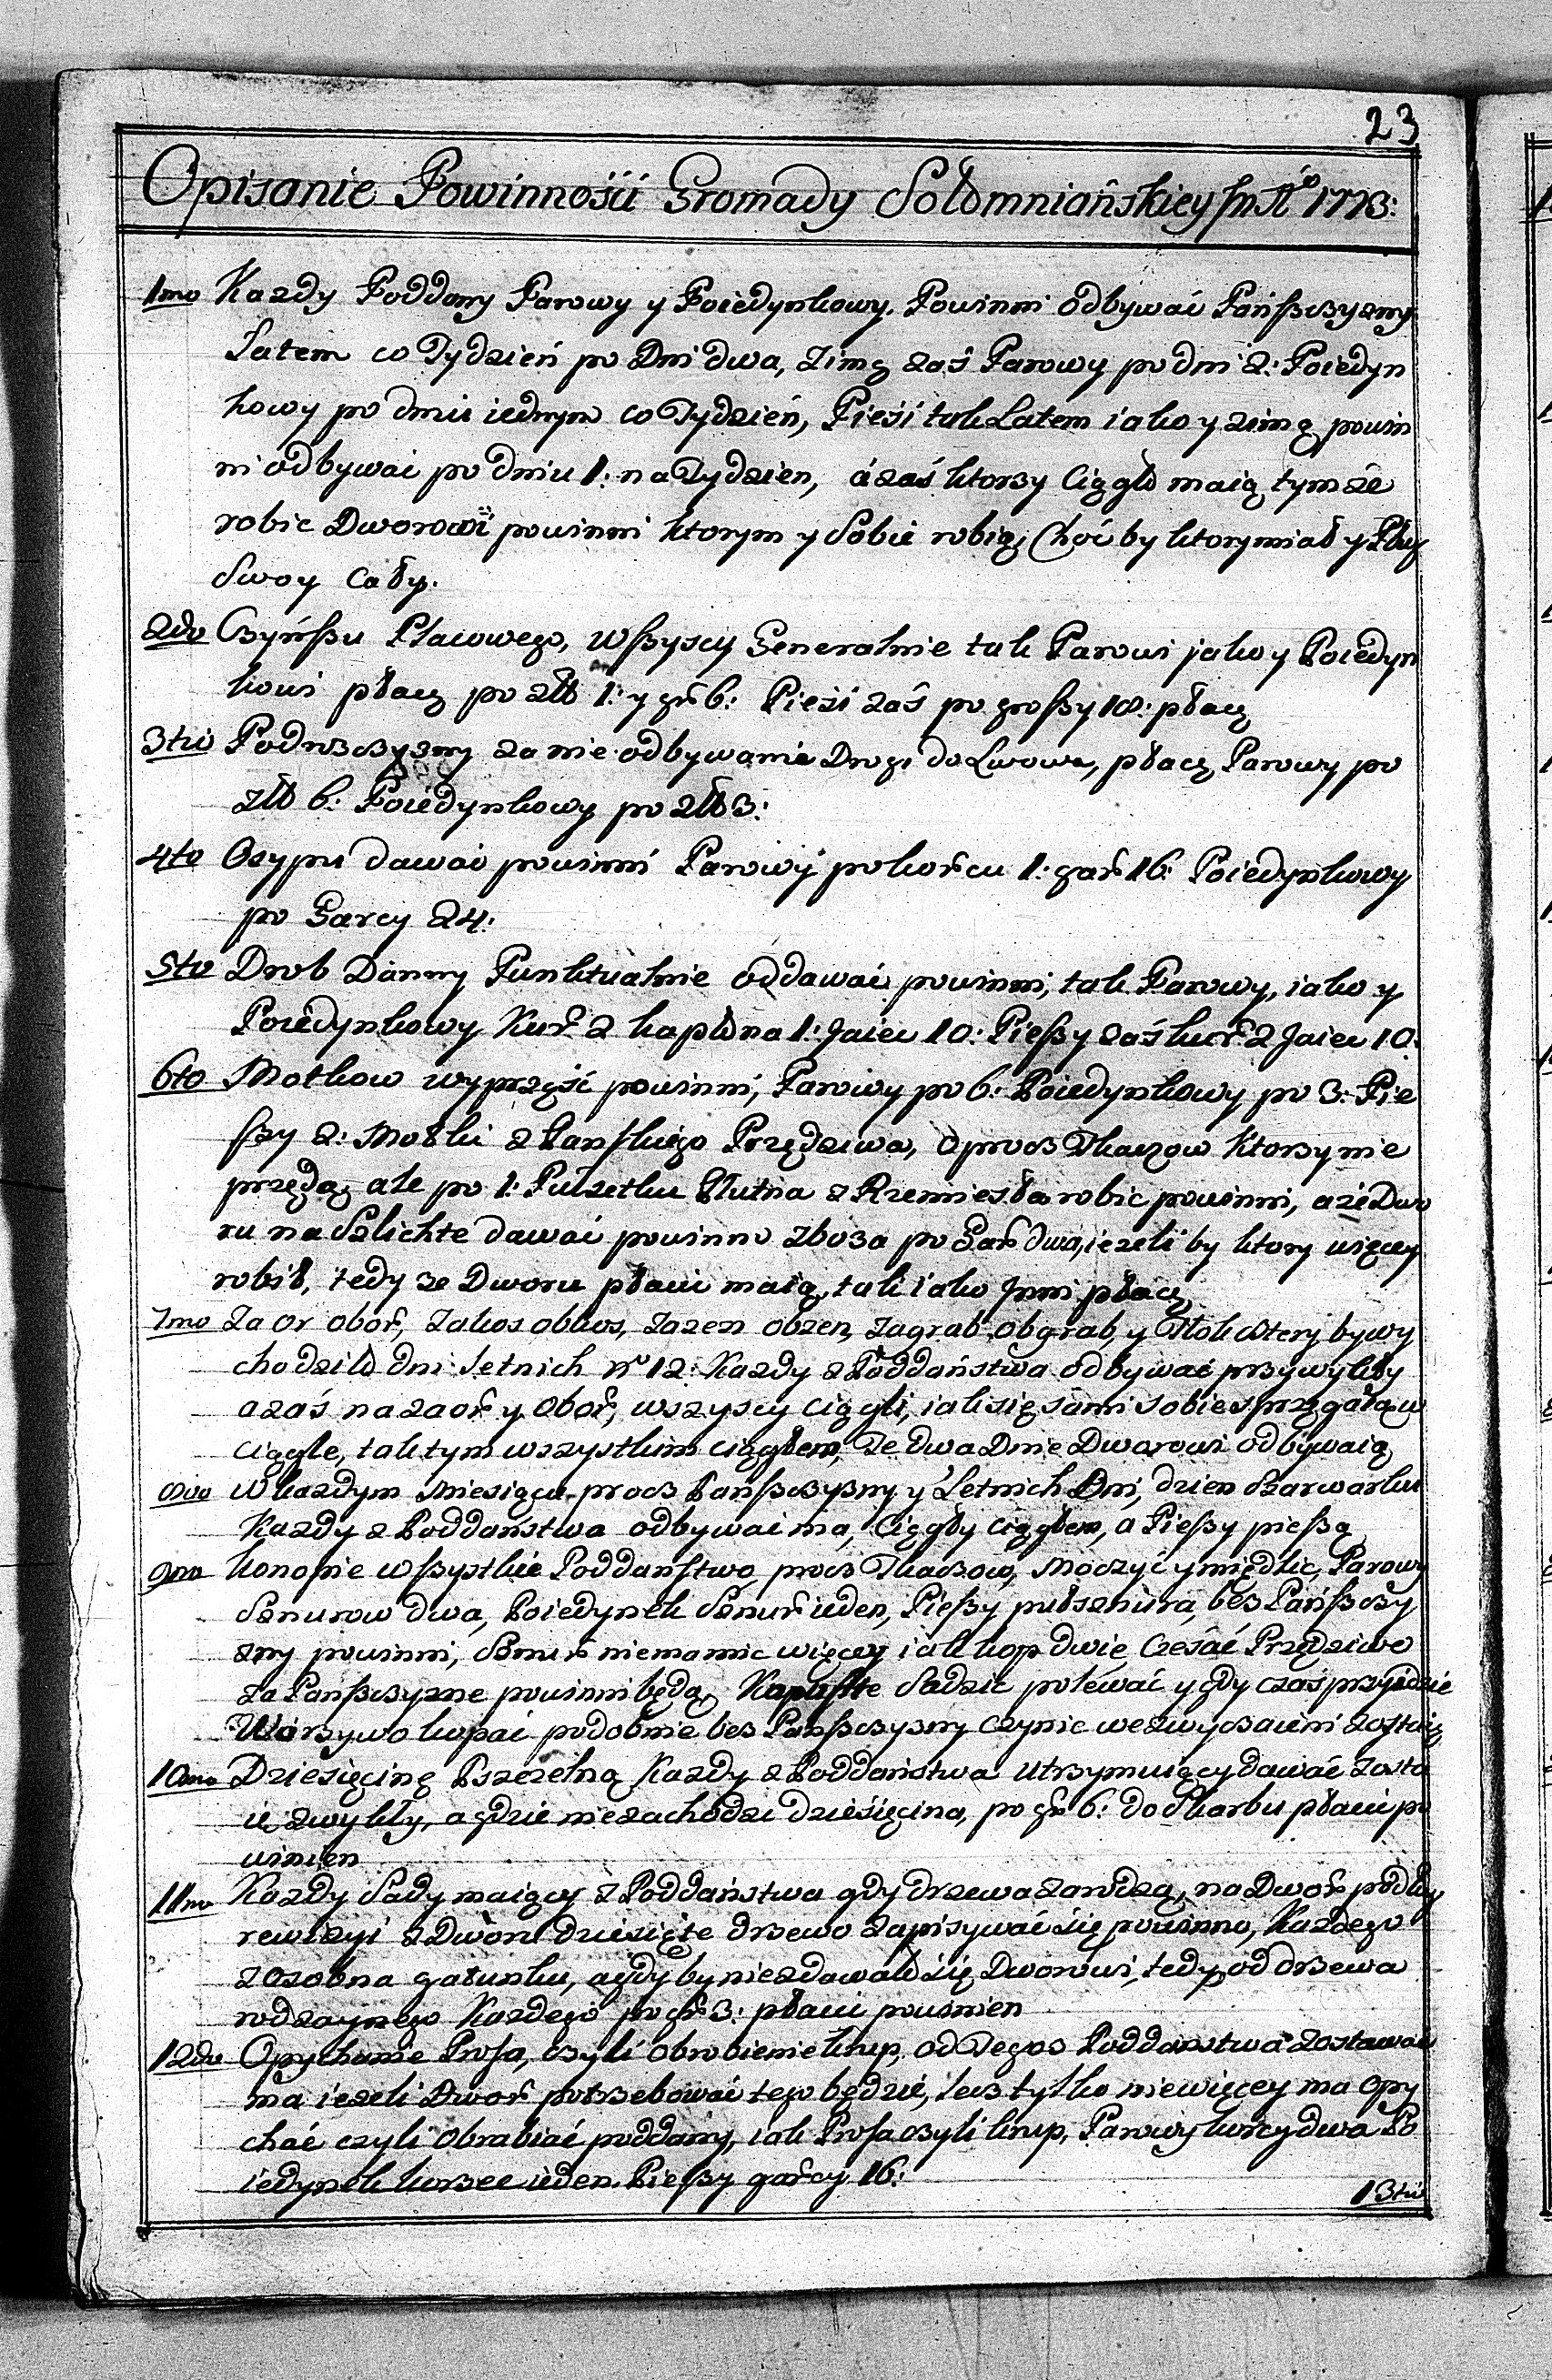 23
Opisanie Powinności Gromady Sołomniańskiey in Ao 1773:
1mo Kazdy Poddany Parowy y Poiedynkowy, Powinni odbywać Pańszczyzny
Latem co Tydzień po Dni dwa, Zimą zaś Parowy po dni 2: Poiedyn
kowy po dniu iednym co Tydzień, Pieśi tak Latem iako y zimą powin
ni odbywać po dniu 1: na Tydzien, á zaś ktorzy Ciągło maią tymże
robic Dworowi powinni ktorym y Sobie robią, Choć by ktory miał y Pług
Swoy Cały.
2do Czyńszu Placowego, wszyscy Generalnie tak Parowi jako y Poiedyn
kowi płacą po złł 1: y gr 6: Pieśi zaś po groszy 18: płacą
3tio Podrozczyzny za nie odbywanie Drogi do Lwowa, płacą Parowy po
złł 6: Poiedynkowy po złł 3:
4to Osypu dawać powinni Parowy po korcu 1: gar 16: Poiedynkowy
po Garcy 24:
5to Drob Danny Punktualnie oddawać powinni, tak Parowy, iako y
Poiedynkowy Kur 2 kapłona 1: Jaiec 10: Pieszy zaś kur 2 Jaiec 10:
6to Motkow wyprząść powinni, Parowy po 6: Poiedynkowy po 3: Pie
szy 2: Motki z Pańskiego Przędziwa, oprocz Tkaczow ktorzy nie
przędą, ale po 1: Pułsetku Płutna z Rzemiesła robic powinni, a ze Dwo
ru na Szlichte dawać powinno zboza po Gar: dwa, iezeli by ktory więcey
robił, tedy ze Dworu płacic maią, tak iako Jnni płacą
7mo Zaor obor, zakos obkos, zazen obzen, zagrab obgrab, y Tłok cztery bywy
chodziło dni letnich No 12: Kazdy z Poddaństwa odbywać przywykły
a zaś na zaor y obor, wszyscy ciągli, iak się sami sobie sprzęgaią w
ciągle, tak tym wszystkim ciągłem, Te dwa Dnie Dworowi odbywaią
8vo W kazdym Miesiącu procz Pańszczyzny y Letnich Dni, dzien Szarwarku
Kazdy z Poddaństwa odbywac ma, Ciągły ciągłem, a Pieszy pieszą
9no Konopie wszystkie Poddaństwo, procz Tkaczow, Moczyć y międlic, Parowy
Sznurow dwa, Poiedynek Sznur ieden, Pieszy puł sznura, bez Pańszczy
zny powinni, Sznur nie ma mic więcey iak kop dwie, Czesać Przędziwo
za Pańszczyzne powinni będą, Kapuste Sadzic polewać y gdy czas przyidzie
Warzywo kopać podobnie bez Pańszczyzny czynic we zwyczaieni zostaią
10mo Dziesięcinę Pszczelną Kazdy z Poddaństwa utrzymuiący dawać zosta
ie zwykły, a gdzie nie zachodzi dziesięcina, po gr 6: do Skarbu płacic po
winien
11mo Kazdy Sady maiący z Poddaństwa gdy drzewa zarodzą, na Dwor podług
rewizyi z Dworu dziesięte drzewo zapisywać się powinno, Kazdego
z osobna gatunku, a gdy by nie zdawało się Dworowi, tedy od drzewa
rodzaynego Kazdego po gr 3: płacic powinien
12do Opychanie Prosa, czyli obrobienie krup, od Tegoz Poddaństwa zostawać
ma iezeli Dwor potrzebować tego będzie, lecz tylko niewięcey ma opy
chać czyli obrabiać poddany, iak Prosa czyli krup, Parowy korcy dwa Po
iedynek korzec ieden, Pieszy garcy 16:
13tio